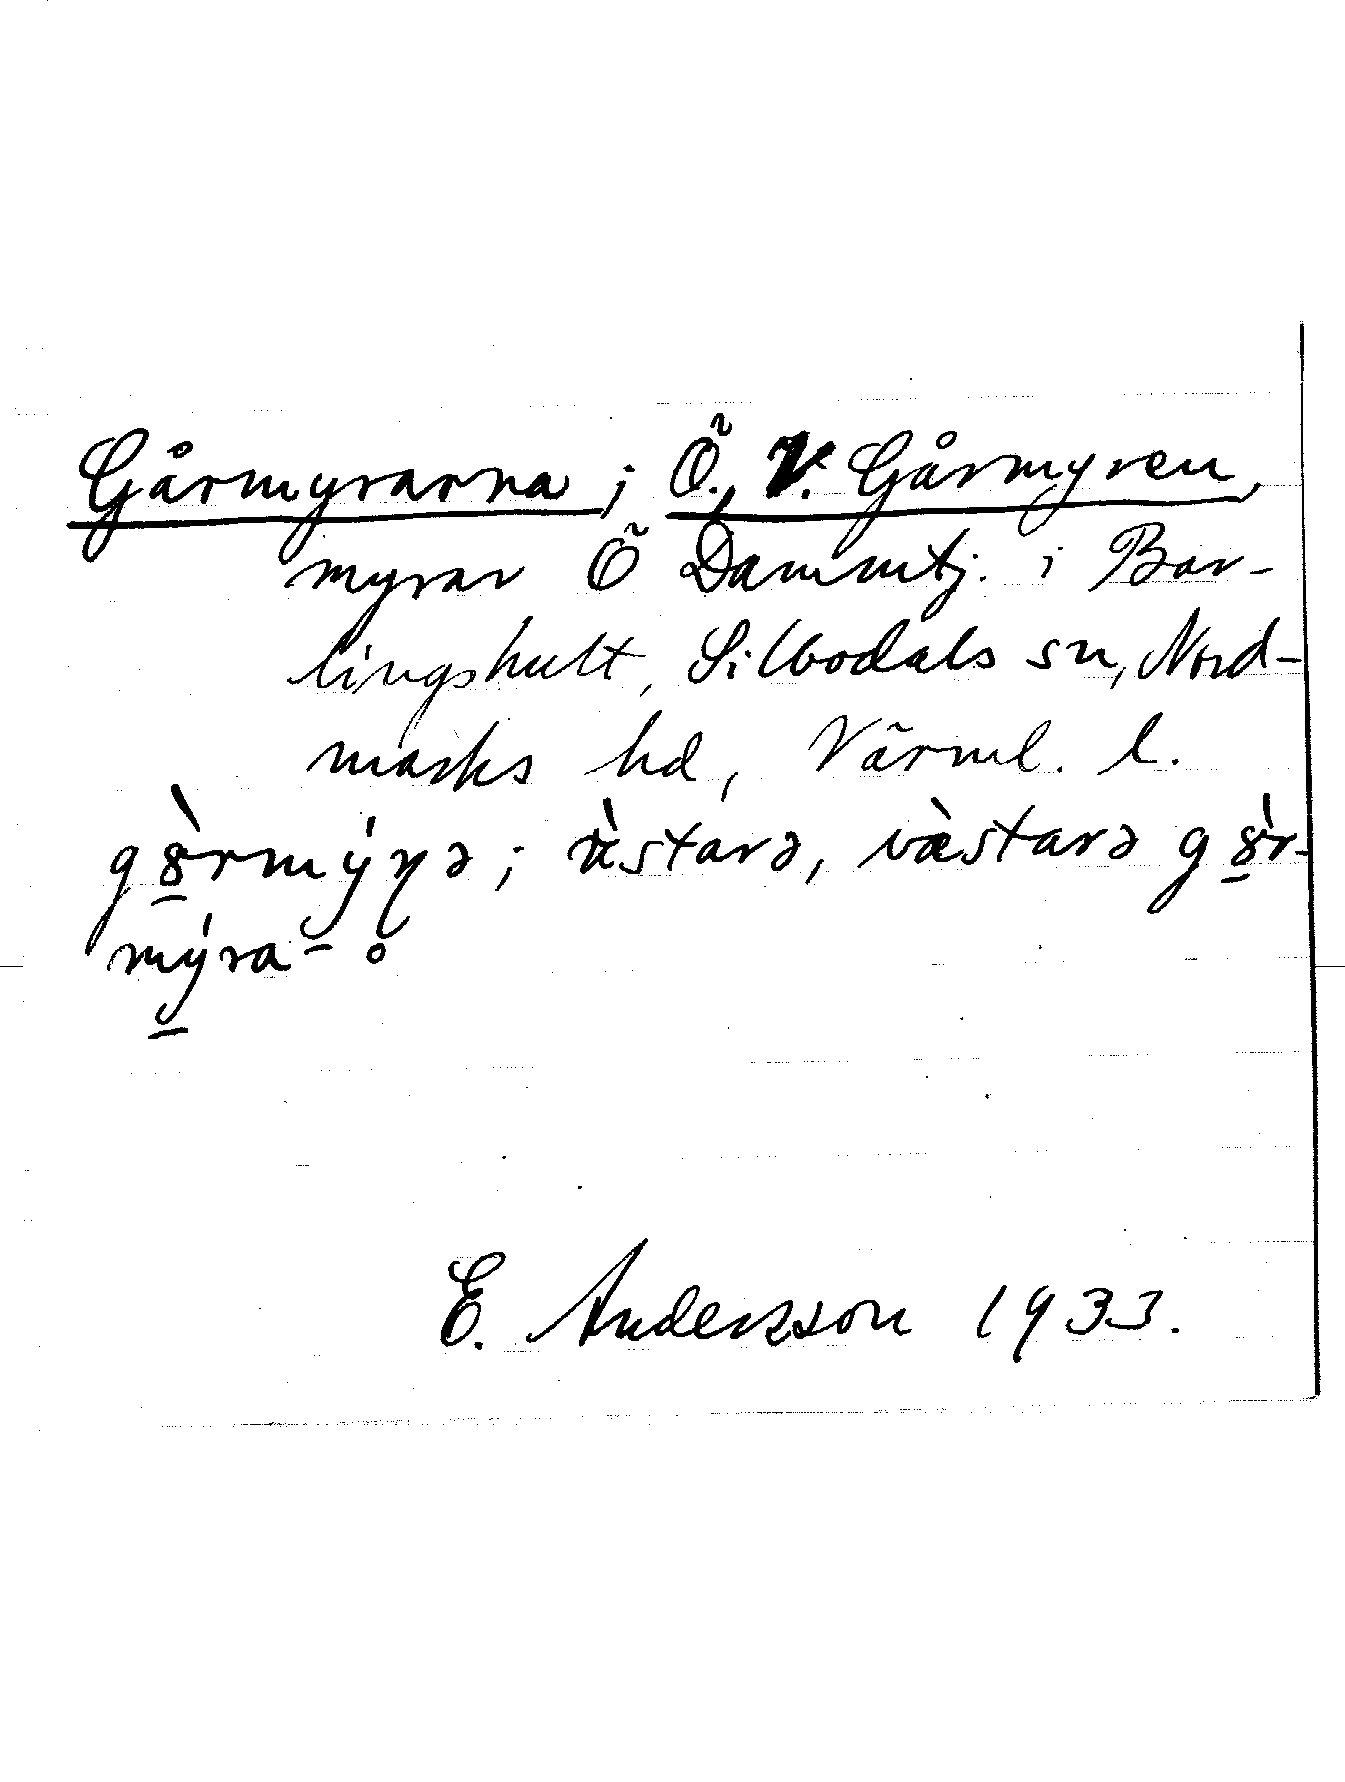 Gårmyrarna; Ö., V. Gårmyren,
myrar Ö Dammtj. i Bar-
lingshult, Silbodals sn, Nord-
marks hd, Värml. l.
ästarə, västarə
E. Andersson 1933.